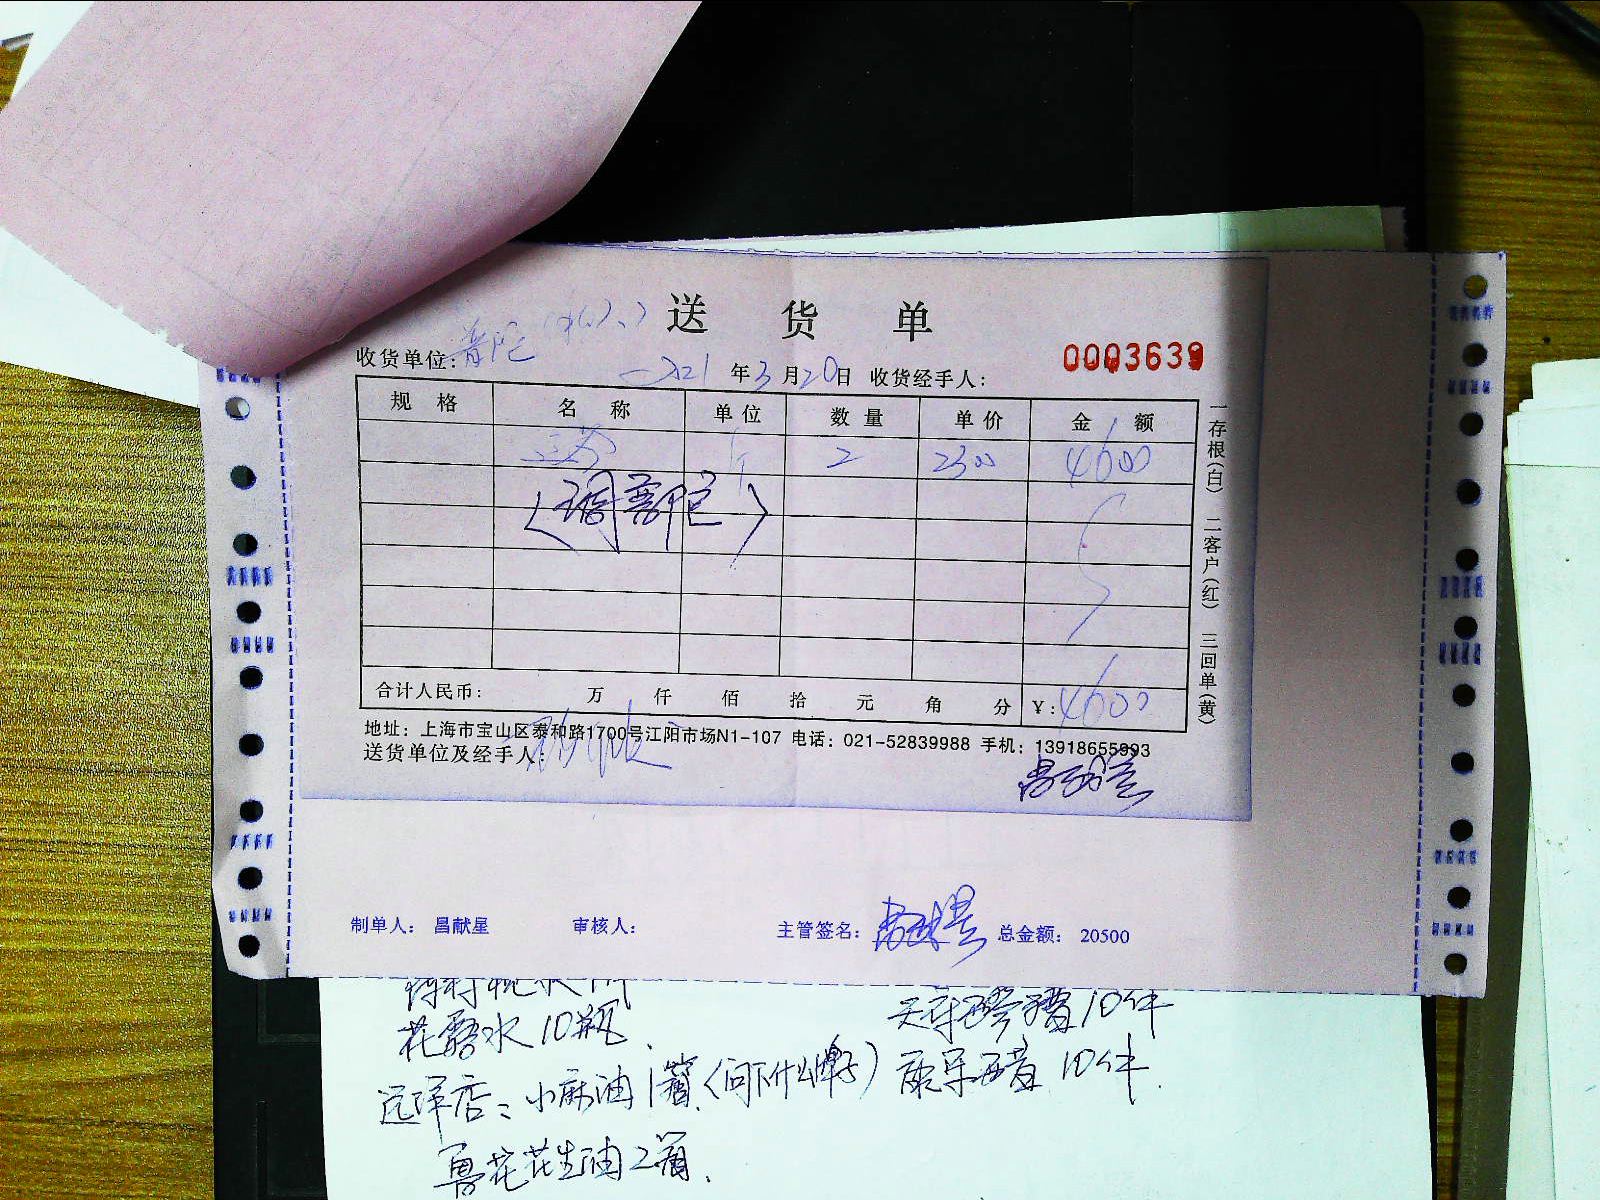 送 货 单
收货单位：普陀
0003639
2021年3月20日 收货经手人：
规 格 名 称 单 位 数 量 单 价 金 额
2 2300 4600
合计人民币： 万 仟 佰 拾 元 角 分 ¥：4600
地址：上海市宝山区泰和路1700号江阳市场N1-107 电话：021-52839988 手机：13918655993
送货单位及经手人：
一存根(白) 二客户(红) 三回单(黄)
制单人： 昌献星 审核人： 主管签名：昌献星 总金额： 20500
花露水10瓶
10件
远洋店：小麻油1箱 10件
鲁花花生油2箱.